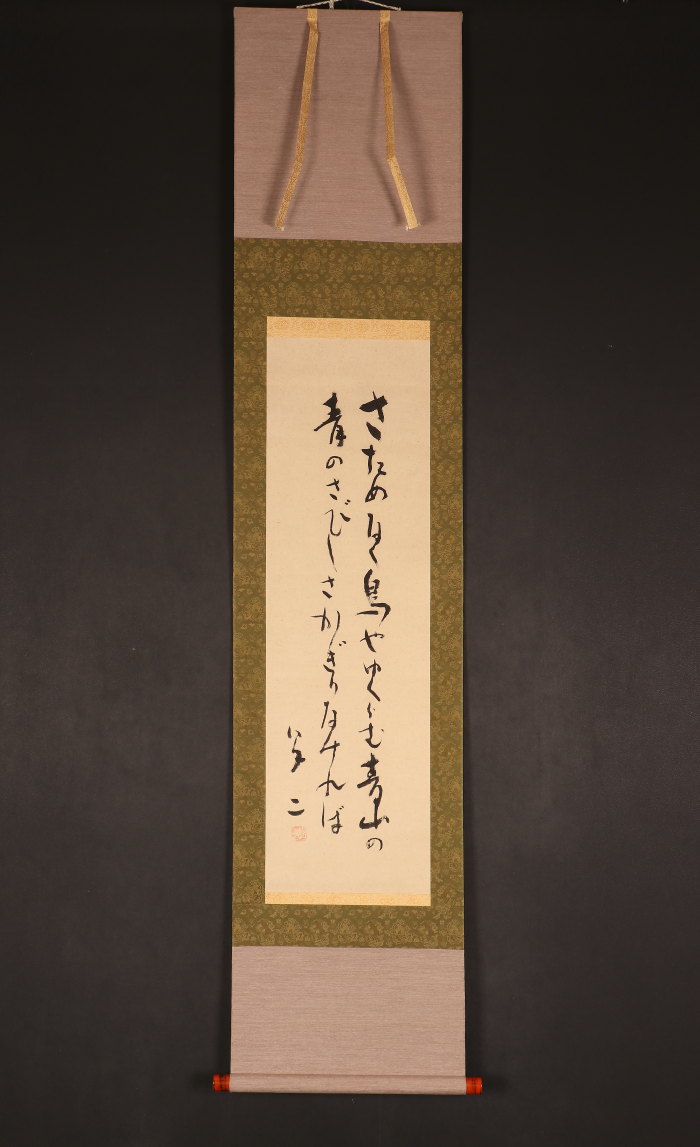 さためなく鳥やゆくらむ青山の
青のさびしさかぎりなければ
準二